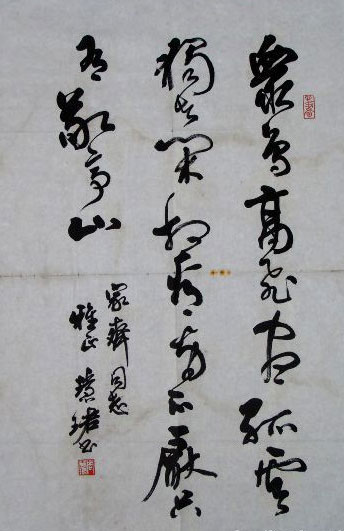 眾鳥高飛盡孤雲
獨去閑相看兩不厭只
有敬亭山
家齊同志
雅正 慧珺书